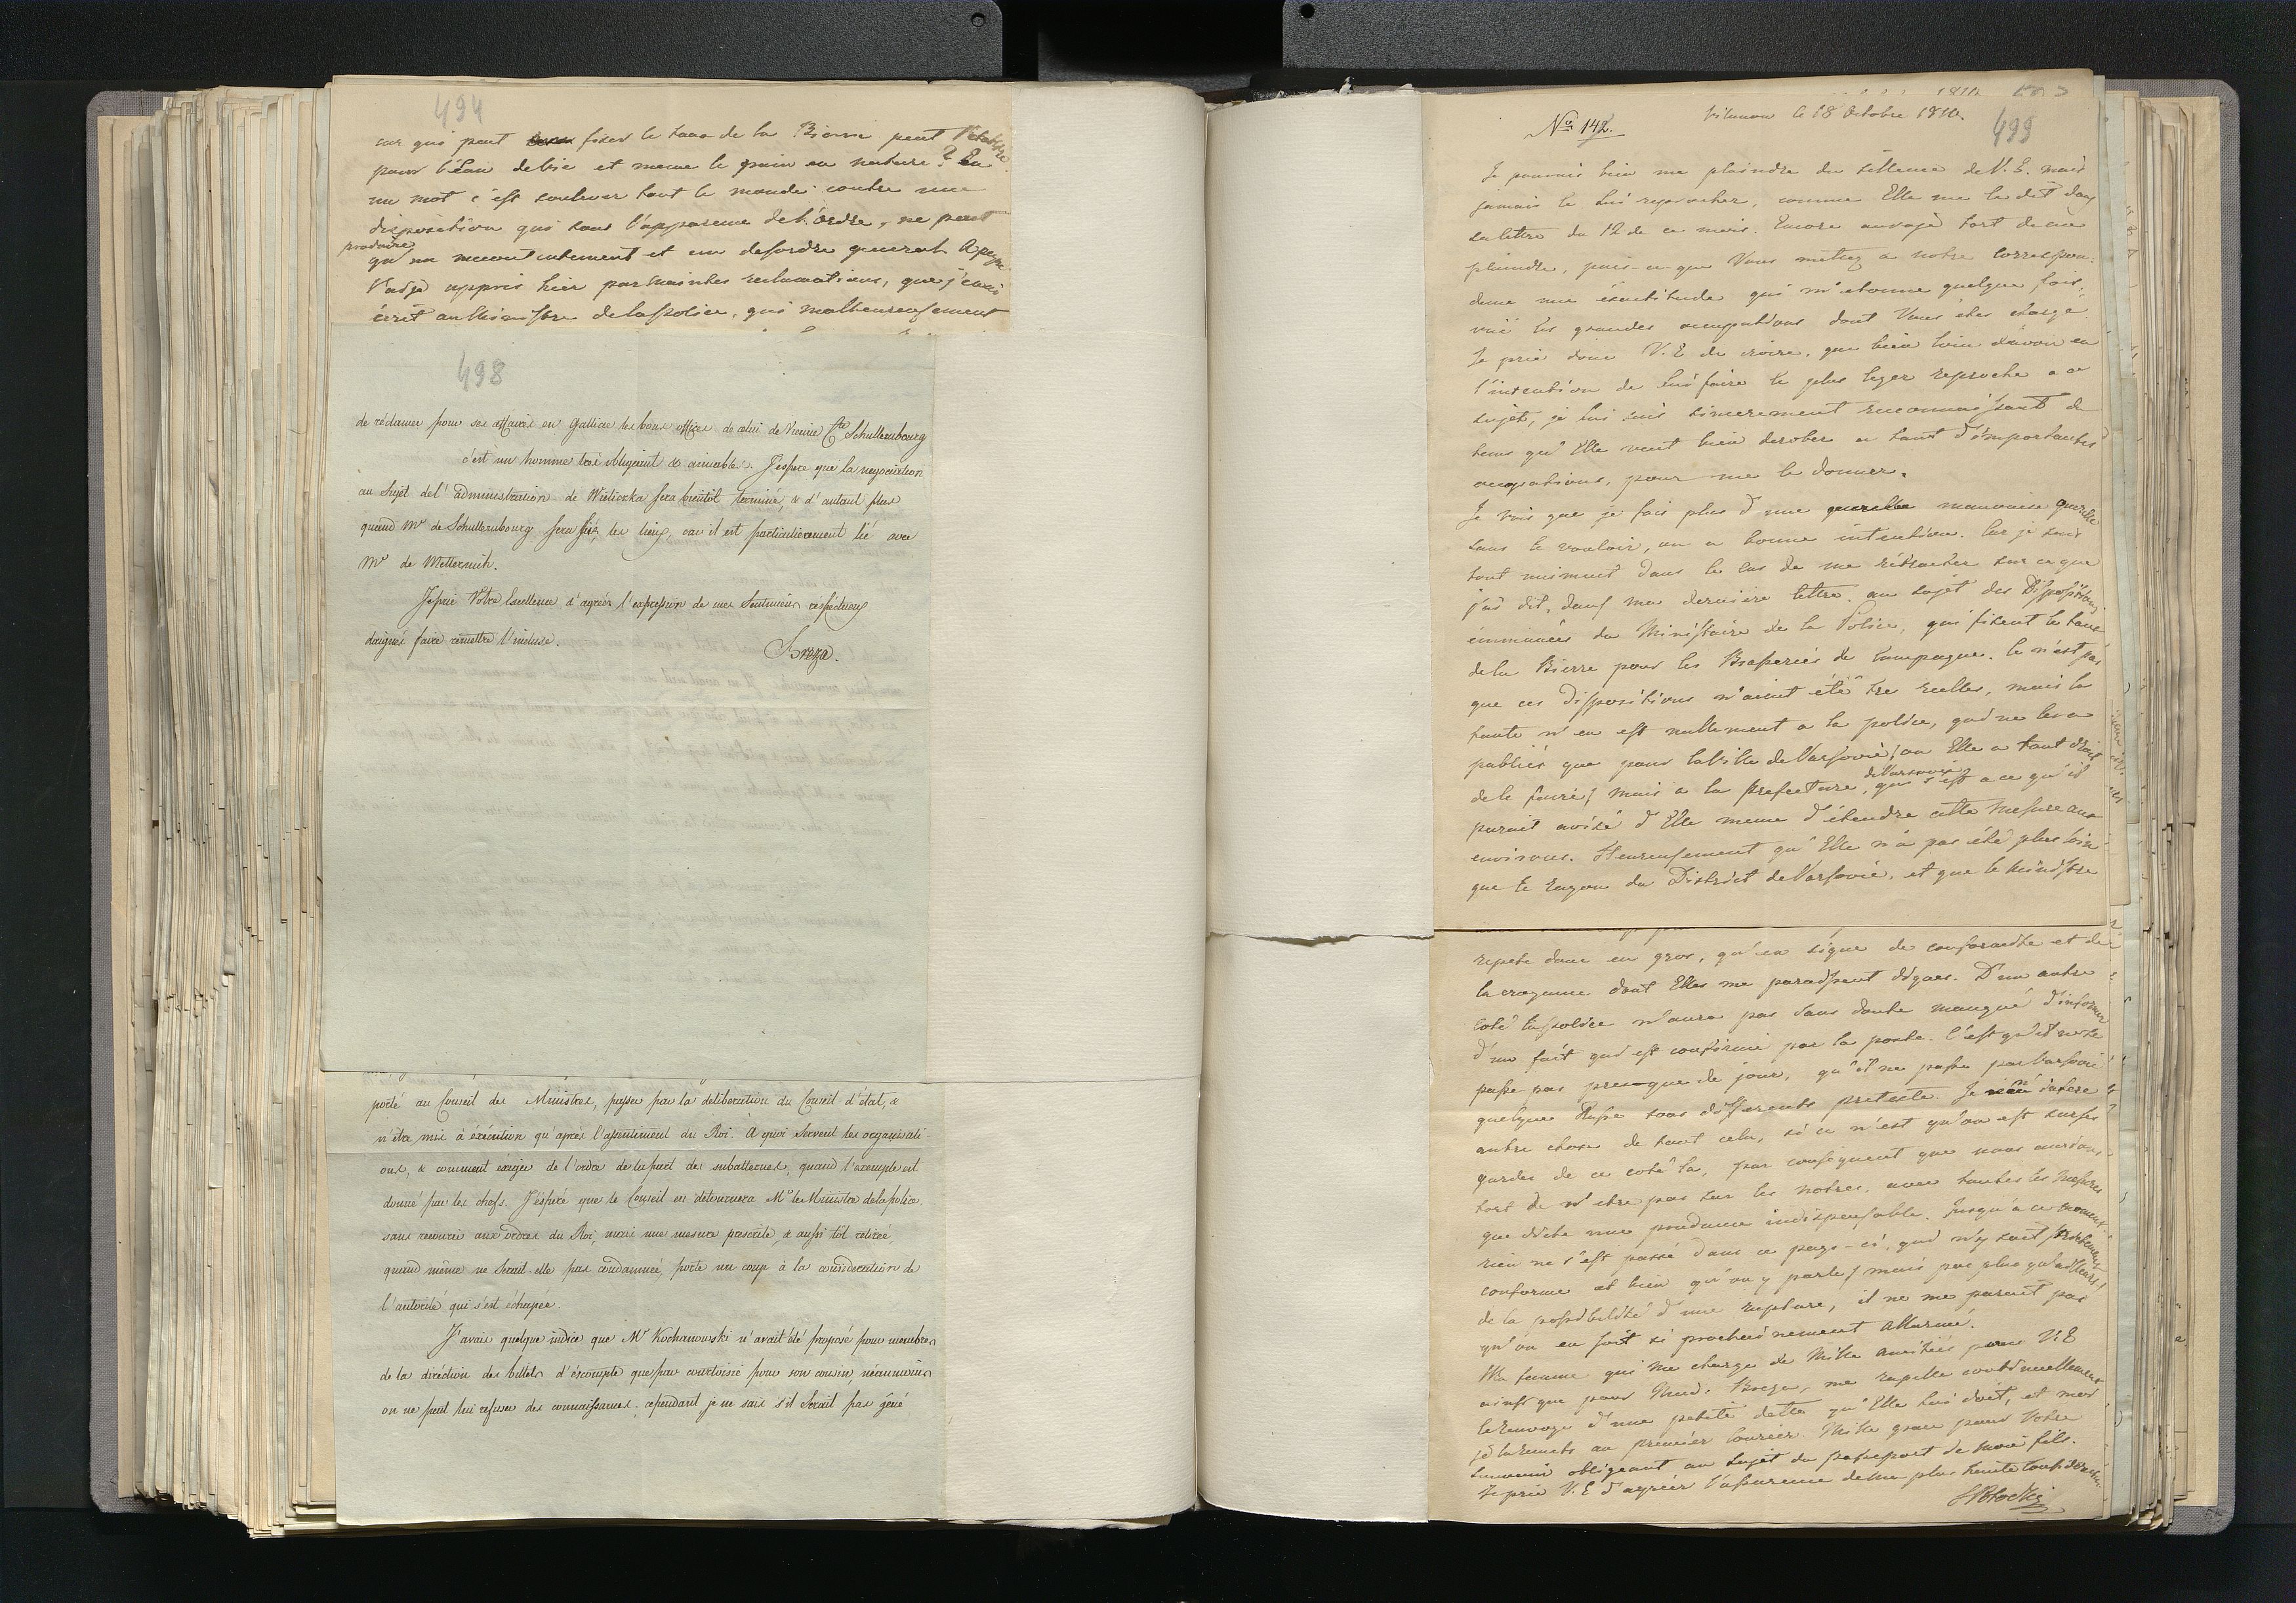 494
car qui peut fixer le taux de la Bierre peut l'etablir
pour l'eau de vie et meme le grain en nature? En
un mot c'est soulever tout le monde contre une
disposition qui sous l'apparence de l'ordre, ne peut
produire
qu'un mecontentement et un desordre general. A peine
l'ai-je appris hier par maintes reclamations, que j'ai
écrit au Ministre de la police, qui malheureusement
498
de réclamer pour ses affaires en Gallicie les bons offices de celui de Vienne Cte Schullembourg
c'est un homme très obligeant & aimable. J'espère que la negociation
au sujet de l'administration de Wieliczka sera bientôt terminé, & d'autant plus
quand Mr de Schullembourg sera sur les lieux, car il est particulierement lié avec
Mr de Metternich.
Je prie Votre Excellence d'agréer l'expression de mes Sentimens respectueux
daignez faire remettre l'incluse.
Breza.
porté au Conseil des Ministres, passer par la deliberation du Conseil d'état, &
n'être mis à éxécution qu'après l'assentiment du Roi. A quoi servent les organisati-
ons, & comment éxiger de l'ordre de la part des subalternes, quand l'exemple est
donné par les chefs. J'espère que le Conseil en détournera Mr le Ministre de la police
sans recourir aux ordres du Roi, mais une mesure prescrite, & aussi tôt retirée,
quand même ne serait-elle pas condamnée, porte un coup à la considération de
l'autorité qui s'est échapée.
J'avais quelque indice que Mr Kochanowski n'avait été proposé pour membre
de la diréction des billets d'éscompte que par courtoisie pour son cousin, néanmoins
on ne peut lui refuser des connaissances; cependant je ne sais s'il serait pas gêné
No 142.
Vilanow le 18 Octobre 1810.
499
Je pourrois bien me plaindre du sillence de V. E. mais
jamais le lui reprocher, comme Elle me le dit dans
sa lettre du 12 de ce mois. Encore aurois-je tort de me
plaindre, puis-ce-que Vous mettez a notre correspon-
dence une éxactitude qui m'etonne quelque fois,
vuë les grandes occupations dont Vous êtes chargé.
Je prie donc V. E de croire, que bien loin d'avoir eu
l'intention de lui faire le plus leger reproche a ce
sujet, je lui suis sincerement reconnaissant du
tems qu'Elle veut bien derober a tant d'importantes
occupations, pour me le donner.
Je vois que je fais plus d'une mauvaise querelle
sans le vouloir, ou a bonne intention. Car je suis
tout uniment dans le cas de me rétracter sur ce que
j'ai dit, dans ma derniere lettre, au sujet des Dispositions
émmanées du Ministaire de la Police, qui fixent le taux
de la Bierre pour les Brasseries de Campagne. Ce n'est pas
que ces dispositions n'aient été tres reelles, mais la
faute n'en est nullement a la police, qui ne les a
publiés que pour la Ville de Varsovie (ou Elle a tout droit
de Varsovie
de le faire) mais a la prefecture, qui s'est a ce qu'il
parait avisé d'Elle meme d'étendre cette Mesure aux
environs. Heureusement qu'Elle n'a pas été plus loin
que le rayon du District de Varsovie, et que le Ministre
repete donc en gros, qu'en signe de confiance et de
la croyance dont Elles me paraissent dignes. D'un autre
coté la police n'aura pas sans doute manqué d'informer
d'un fait qui est confirmé par la poste. C'est qu'il ne se
passe pas presque de jour, qu'il ne passe par Varsovie
quelque Russe sous differents pretexte. Je n'en infere
autre chose de tout cela, si ce n'est qu'on est sur ses
gardes de ce coté la, par consequent que nous aurions
tort de n'etre pas sur les notres, avec toutes les Mesures
que dicte une prudence indispensable. Jusqu'à ce moment
rien ne s'est passé dans ce pays-ci, qui n'y soit strictement
conforme et bien qu'on y parle (mais pas plus qu'ailleurs)
de la possibilité d'une rupture, il ne me parait pas
qu'on en soit si prochainement allarmé.
Ma femme qui me charge de Mille amitiés pour V. E
ainsi que pour Mad. Breza, me rapelle continuellement
le renvoy d'une petite dette qu'Elle lui doit, et moi
je la remets au premier Courier. Mille grace pour Votre
souvenir obligeant au sujet du passeport de mon fils.
Je prie V. E d'agréer l'assurance de ma plus haute consideration
SPotocki